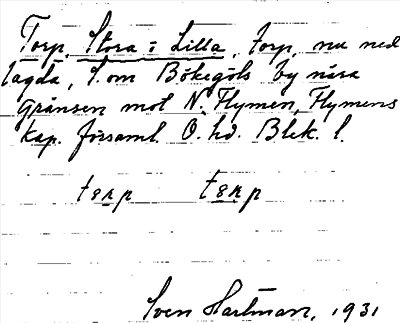 Torp, Stora o Lilla, torp, nu ned
lagda, S. om Bökegöls by nära
gränsen mot N. Flymen, Flymens
kap. församl. Ö. hd. Blek. l.
tɛrp tɛrp
Sven Hartman, 1931